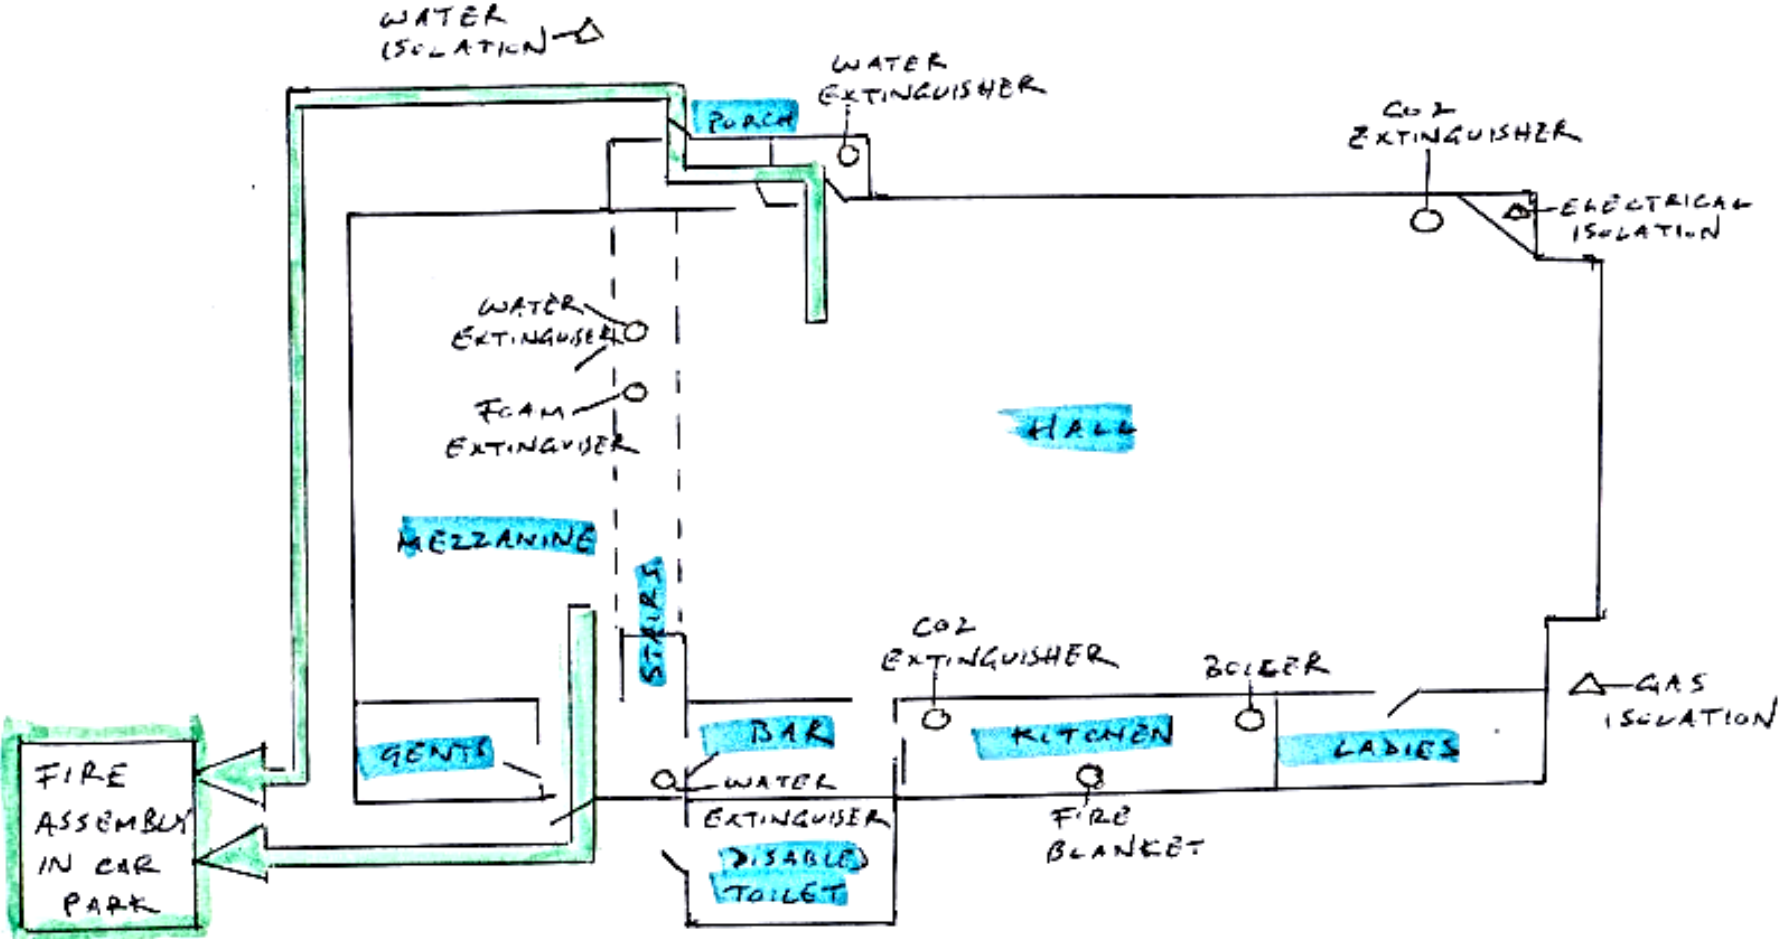 WATER
ISOLATION
WATER
EXTINGUISHER
PORCH
CO2
EXTINGUISHER
ELECTRICAL
ISOLATION
WATER
EXTINGUISER
FOAM
EXTINGUISER
HALL
MEZZANINE
STAIRS
CO2
EXTINGUISHER
BOILER
GAS
ISOLATION
GENTS
BAR
KITCHEN
LADIES
WATER
EXTINGUISER
FIRE
BLANKET
DISABLED
TOILET
FIRE
ASSEMBLY
IN CAR
PARK